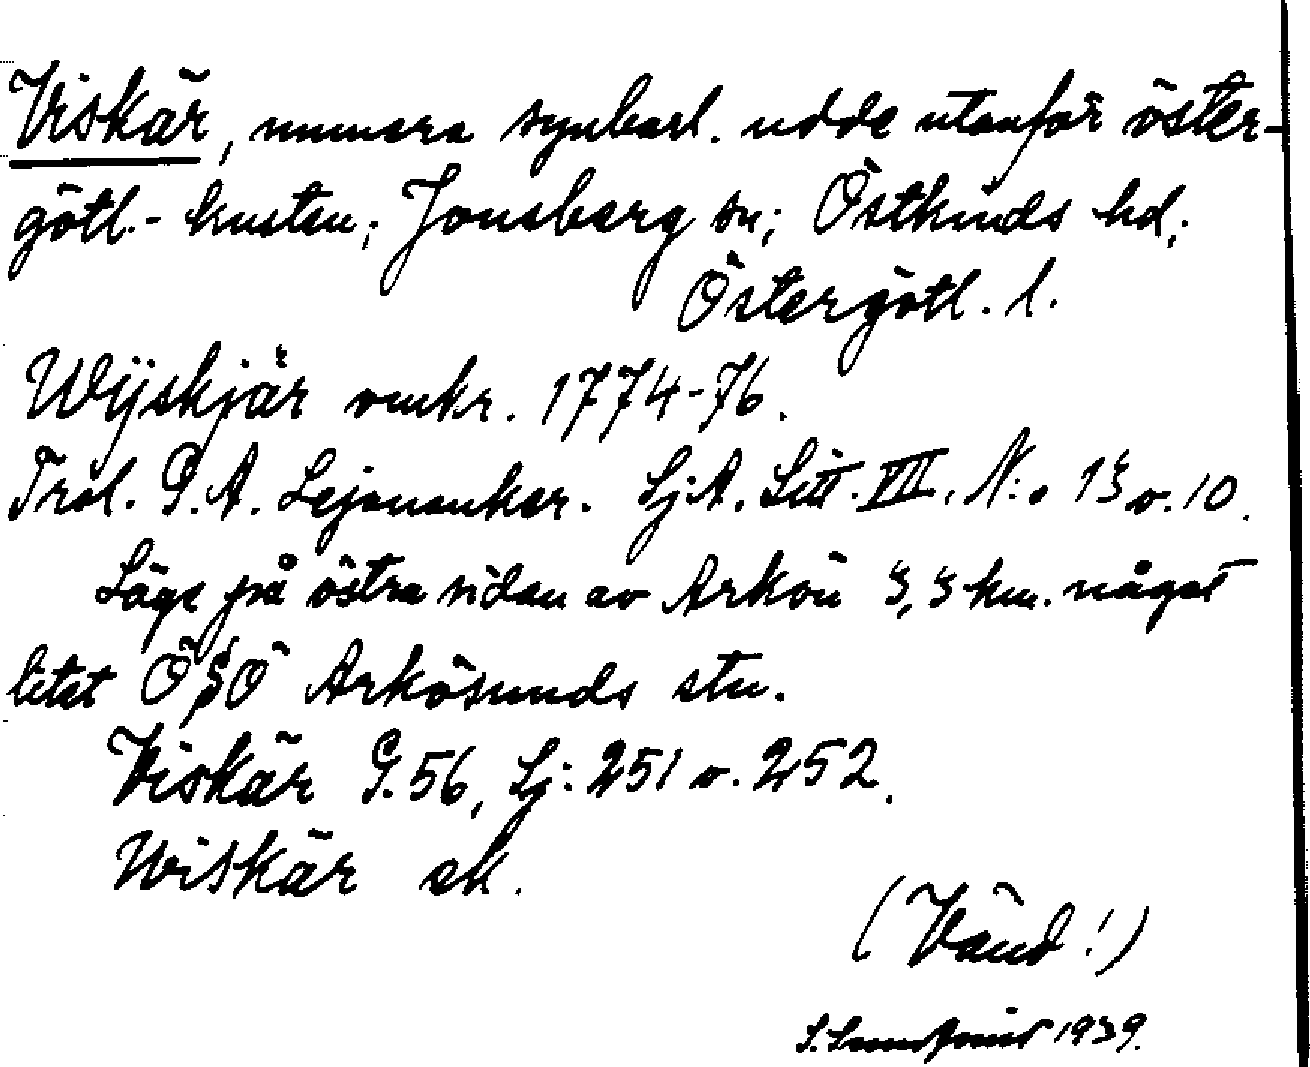 Viskär, numera synbarl. udde utanför öster-
götl.- kusten; Jonsberg sn; Östkinds hd;
Östergötl. l.
Wijskjär omkr. 1774-76.
Trol. P. A. Lejonanker. Lj:A. Litt. VII. N:o 13 o. 10.
Läge på östra sidan av Arkön 3,3 km. något
litet ÖSÖ Arkösunds stn.
Viskär G. 56, Lj: 251 o. 252.
Wiskär ek.
(Vänd!)
1939.